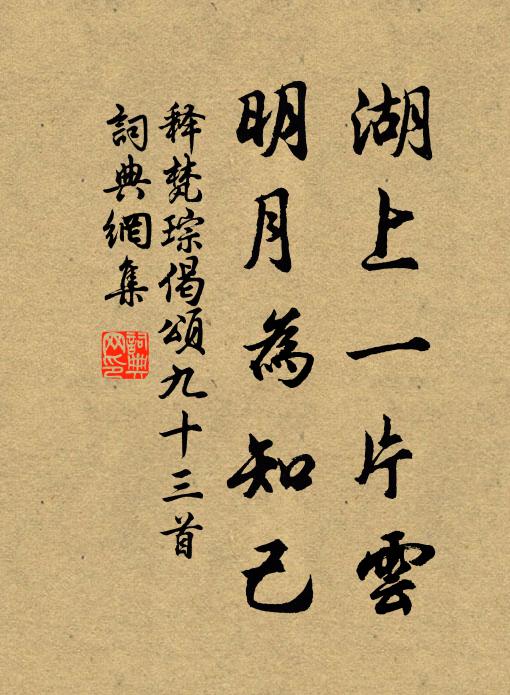 湖上一片雲
明月為知己
释梵琮偈頌九十三首
詞典網集
詞典网印